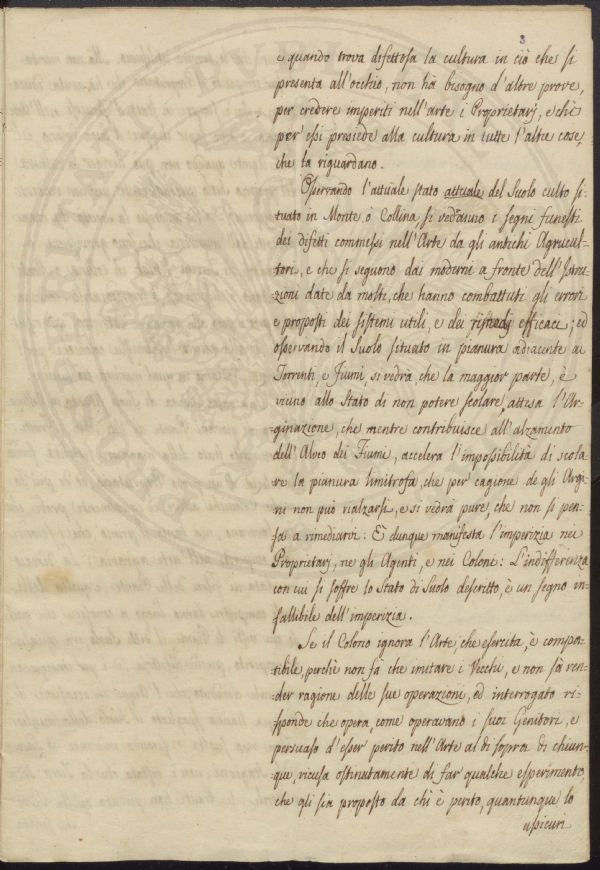 3
e quando trova difettosa la cultura in ciò che si
presenta all'occhio, non hà bisogno d'altre prove,
per credere imperiti nell'arte i Proprietarj, e chi
per essi presiede alla cultura in tutte l'altre cose,
che la riguardano.
Osservando l'attuale stato attuale del Suolo culto si-
tuato in Monte, ò Collina si vedranno i segni funesti
dei difetti commessi nell'Arte da gli antichi Agricul-
tori, e che si seguono dai moderni a fronte dell'Istru-
zioni date da molti, che hanno combattuti gli errori
e proposti dei sistemi utili, e dei rimedj efficaci; ed
osservando il Suolo situato in pianura adiacente ai
Torrenti, e Fiumi, si vedrà, che la maggior parte, è
vicino allo Stato di non potere scolare, attesa l'Ar-
ginazione, che mentre contribuisce all'alzamento
dell'Alveo dei Fiumi, accelera l'impossibilità di scola-
re la pianura limitrofa, che per cagione de gli Argi-
ni non può rialzarsi, e si vedrà pure, che non si pen-
sa a rimediarvi: È dunque manifesta l'imperizia nei
Proprietarj, ne gli Agenti, e nei Coloni: L'indifferenza
con cui si soffre lo Stato di Suolo descritto, è un segno in-
fallibile dell'imperizia.
Se il Colono ignora l'Arte, che esercita, è compa-
tibile, perchè non fà che imitare i Vecchi, e non sà ren-
der ragione delle sue operazioni, ed interrogato ri-
sponde che opera, come operavano i suoi Genitori, e
persuaso d'esser perito nell'Arte al di sopra di chiun-
que, ricusa ostinatamente di far qualche esperimento,
che gli sia proposto da chi è perito, quantunque lo
assicuri